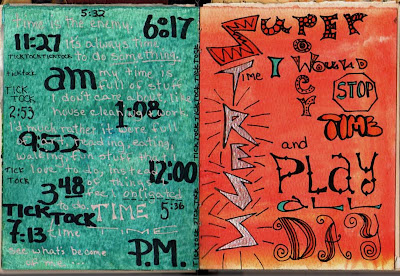 5:32
Time is the enemy,
6:17
11:27
it's always time
TICKTOCKTICKTOCK
to do something.
ticktock
am
my time is
full of stuff
TICK
TOCK
I don't care about like
2:53
house cleaning
work
1:08
I'd much rather it were full
9:53
reading, eating,
walking, fun stuff that I
love to do, instead
12:00
TICK
TOCK
of things
3:48
I feel obligated
to do
TIME
5:36
TICKTOCK
7:13
time
TIME
see what's become
of me
P.M.
SUPER
POWER
STRESS
Time
I WOULD
STOP
TIME
and
PLAY
ALL
DAY